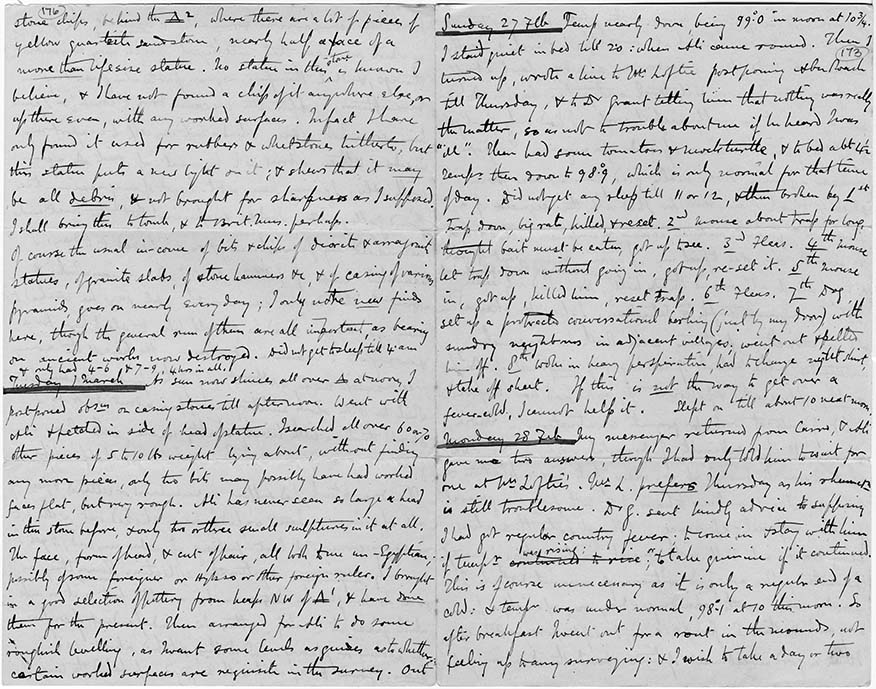 (176)
stone chips, behind the Δ 2, where there are a lot of pieces of
yellow quartzite sandstone, nearly half a face of a
more than lifesize statue. No statue in this stone is known I
believe, & I have not found a chip of it anywhere else, or
up there even, with any worked surfaces. In fact I have
only found it used for rubbers & whetstones hitherto, but
this statue puts a new light on it; & shews that it may
be all debris, & not brought for sharpness as I supposed
I shall bring this to tomb, & to Brit. Mus. perhaps.
Of course the usual in-come of bits & chips of diorite &
statues, of granite slabs, of stone hammers &c, & of casing of various
pyramids, goes on nearly every day; I only note new finds
here, though the general run of them are all important as bearing
on ancient works now destroyed. Did not get to sleep till 4 am
& only had 4-6 & 7-9, 4 hrs in all.
Tuesday 1 March As sun now shines all over Δ at noon, I
postponed obsns on casing stones till afternoon. Went with
Ali & fetched in side of head of statue. I searched all over 60 or 70
other pieces of 5 to 10 lbs weight lying about, without finding
any more pieces, only two bits may possibly have had worked
faces flat, but very rough. Ali has never seen so large a head
in this stone before, & only two or three small sculptures in it at all.
The face, form of head, & cut of hair, all look to me un-Egyptian,
possibly of some foreigner or Hyksos or other foreign ruler. I brought
in a good selection of pottery from heaps NW of Δ 1, & have done
them for the present. Then arranged for Ali to do some
roughish levelling, as I want some levels as guides as to whether
certain worked surfaces are requisite in the survey. Out
Sunday 27 Feb Temp nearly down, being 99°0 in morn at 10¾.
I staid quiet in bed till 2 o: when Ali came round. Then I
(173)
turned up, wrote a line to Mr Loftie postponing Abu Roash
till Thursday, & to Dr Grant telling him that nothing was really
the matter, so as not to trouble about me if he heard I was
"ill". Then had some tomatoes & mock turtle, & to bed abt 4½
Tempr then down to 98°9, which is only normal for that time
of day. Did not get any sleep till 11 or 12, & then broken by 1st
Trap down, big rat, killed & reset. 2nd mouse about trap for long,
thought bait must be eaten, got up to see. 3rd Fleas. 4th mouse
let trap down without going in, got up, re-set it. 5th mouse
in, got up, killed him, reset trap. 6th Fleas. 7th Dog
set up a protracted conversational barking (just by my door) with
sundry neighbours in adjacent villages. went out & pelted
him off. 8th woke in heavy perspiration, had to change night shirt,
& take off sheet. If this is not the way to get over a
fever-cold, I cannot help it. Slept on till about 10 next morn.
Monday 28 Feb My messenger returned from Cairo, & Ali
gave me two answers, though I had only told him to wait for
one at Mr Loftie's. Mr L. prefers Thursday as his rheumsm
is still troublesome. Dr G. sent kindly advice to supposing
I had got regular country fever: to come in & stay with him
if tempr was rising: continued to rise", & to take quinine if it continued.
This is of course unnecessary as it is only a regular end of a
cold: & tempr was under normal, 98°1 at 10 this morn. So
after breakfast I went out for a rout in the mounds, not
feeling up to any surveying: & I wish to take a day or two